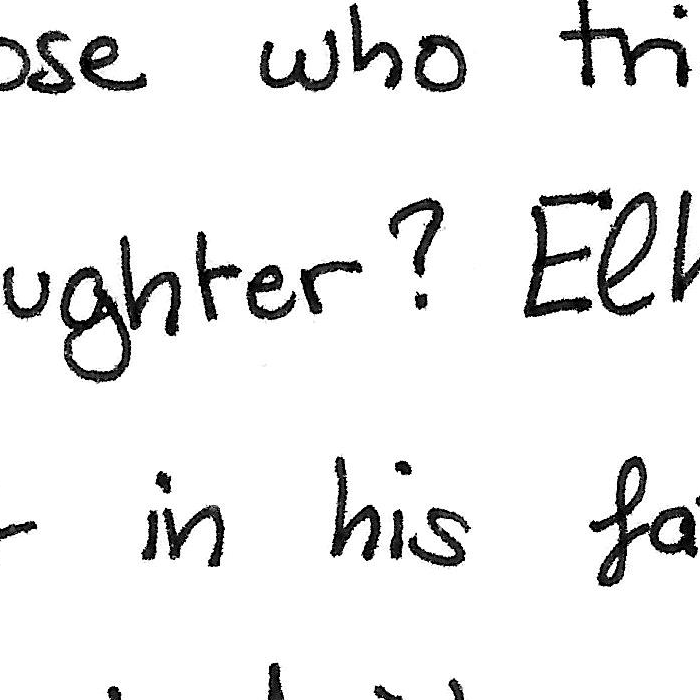 ose who tri
ughter? Elh
in his fa